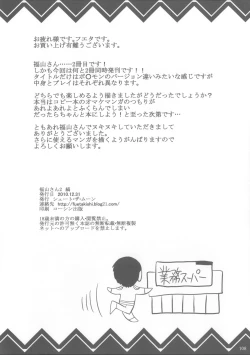 お疲れ様です。フエタです。
お買い上げ有難うございます。
福山さん……2冊目です！
しかも今回は何と2冊同時発刊です！！
タイトルだけはポ〇モンのバージョン違いみたいな感じですが
中身とプレイはそれぞれ異なります。
どちらでも楽しめるよう描きましたがどうだったでしょうか？
本当はコピー本のオマケマンガのつもりが
あれよあれよとふくらんでしまい
だったらちゃんと本にしよう！と思った次第です。
ともあれ福山さんでヌキヌキしていただきまして
ありがとうございます。
さらに使えるマンガを描くようがんばりますので
よろしくお願いします。
福山さん2 緑
発行日 2010.12.31
発行 シュート・ザ・ムーン
連絡先 http://fuetakishi.blog21.com/
印刷 コーシン出版
18歳未満の方の購入・閲覧禁止。
発行元の許可無く本誌の無断転載・無断複製
ネットへのアップロードを禁止します。
業務スーパー